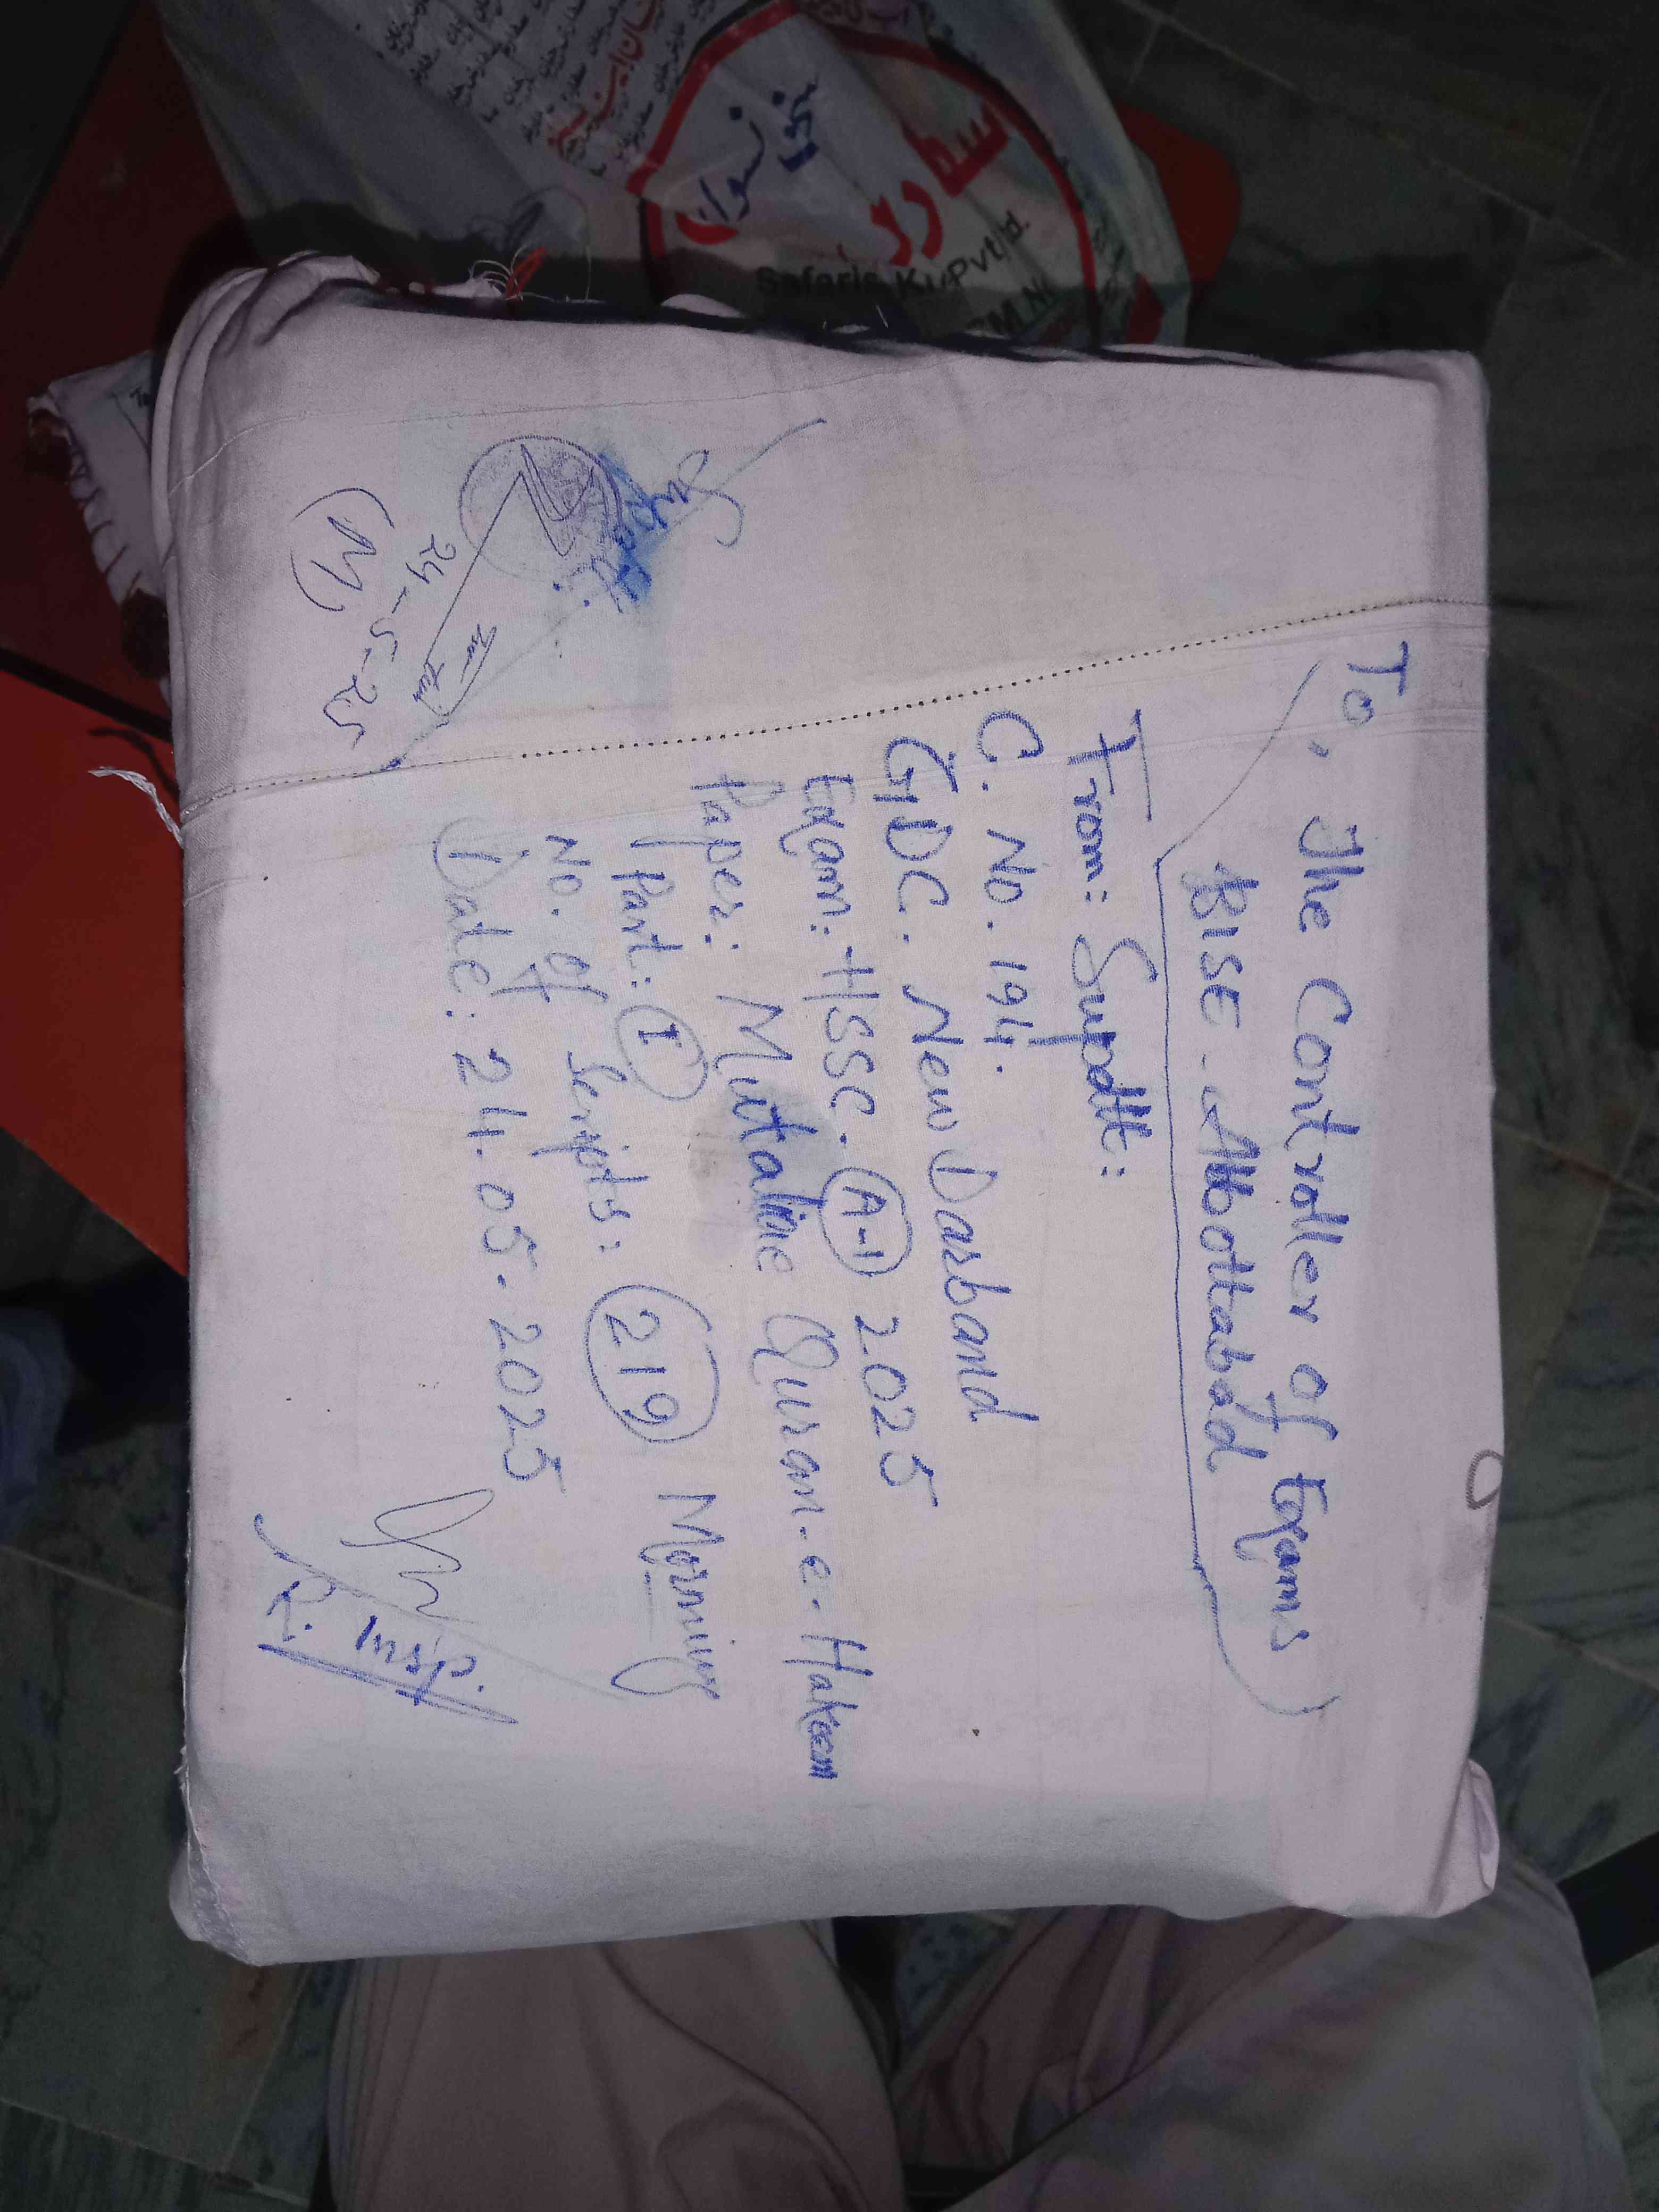 To, The Controller of Exams
BISE Abbottabad
From: Supdtt:
C. No. 194.
GDC. New Darband
Exam: HSSC. A-1 2025
Paper: Mutalae Quran-e-Hakeem
Part: I
No. of Scripts: 219 Morning
Date: 24.05.2025
R. Insp.
24-5-25
(M)
سفاری
نسوار
Safaris Kv Pvt Ltd.